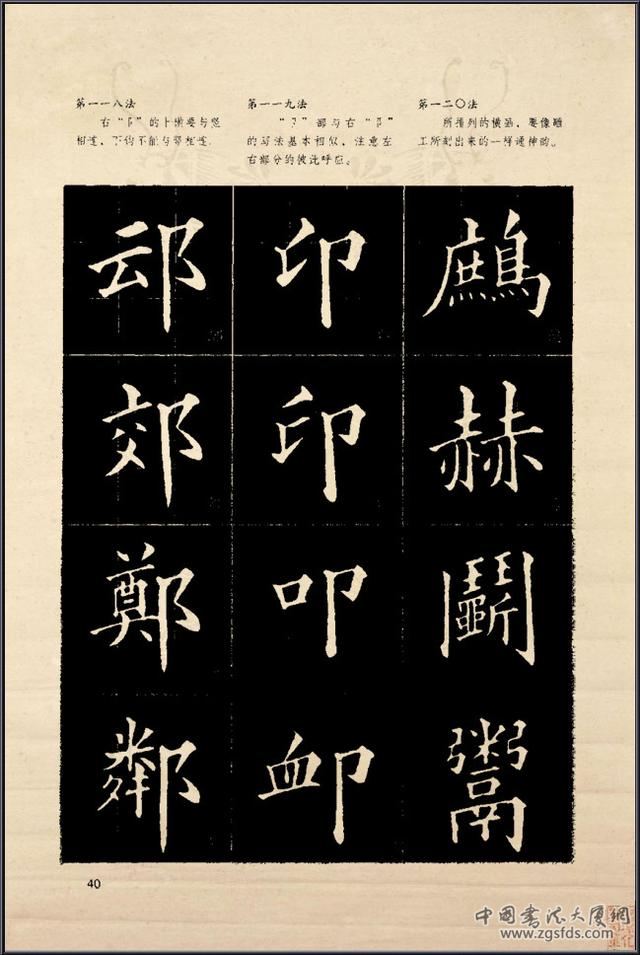 第一一八法
右“阝”的上撇要与竖
相连，下钩不能与竖相连。
第一一九法
“卩”部与右“阝”
的写法基本相似，注意左
右部分的彼此呼应。
第一二〇法
所排列的横画，要像雕
工所刻出来的一样
䢵 印 鷓
郊 印 赫
鄭 叩 鬭
鄰 卹 鬻
40
中国书法大厦網
www.zgsfds.com